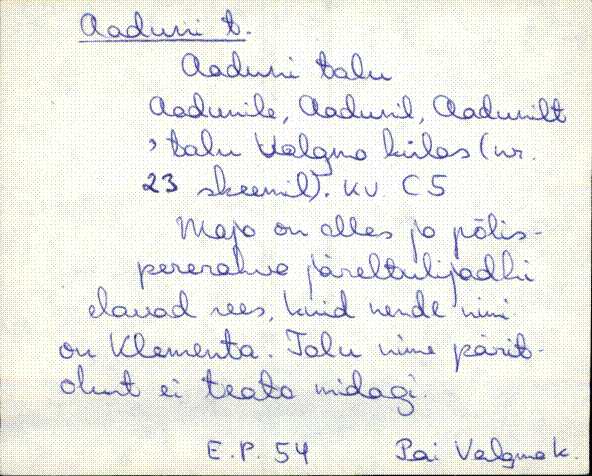 Aaduni t.
Aaduni talu
Aadunile, Aadunil, Aadunilt
, talu Valgma külas (nr.
23 skeemil). KU C5
Maja on alles ja põlis-
pererahva järeltulijadki
elavad sees, kuid nende nimi
on Klementa. Talu nime pärit-
olust ei teata midagi.
E.P. 54 Pai Valgma k.